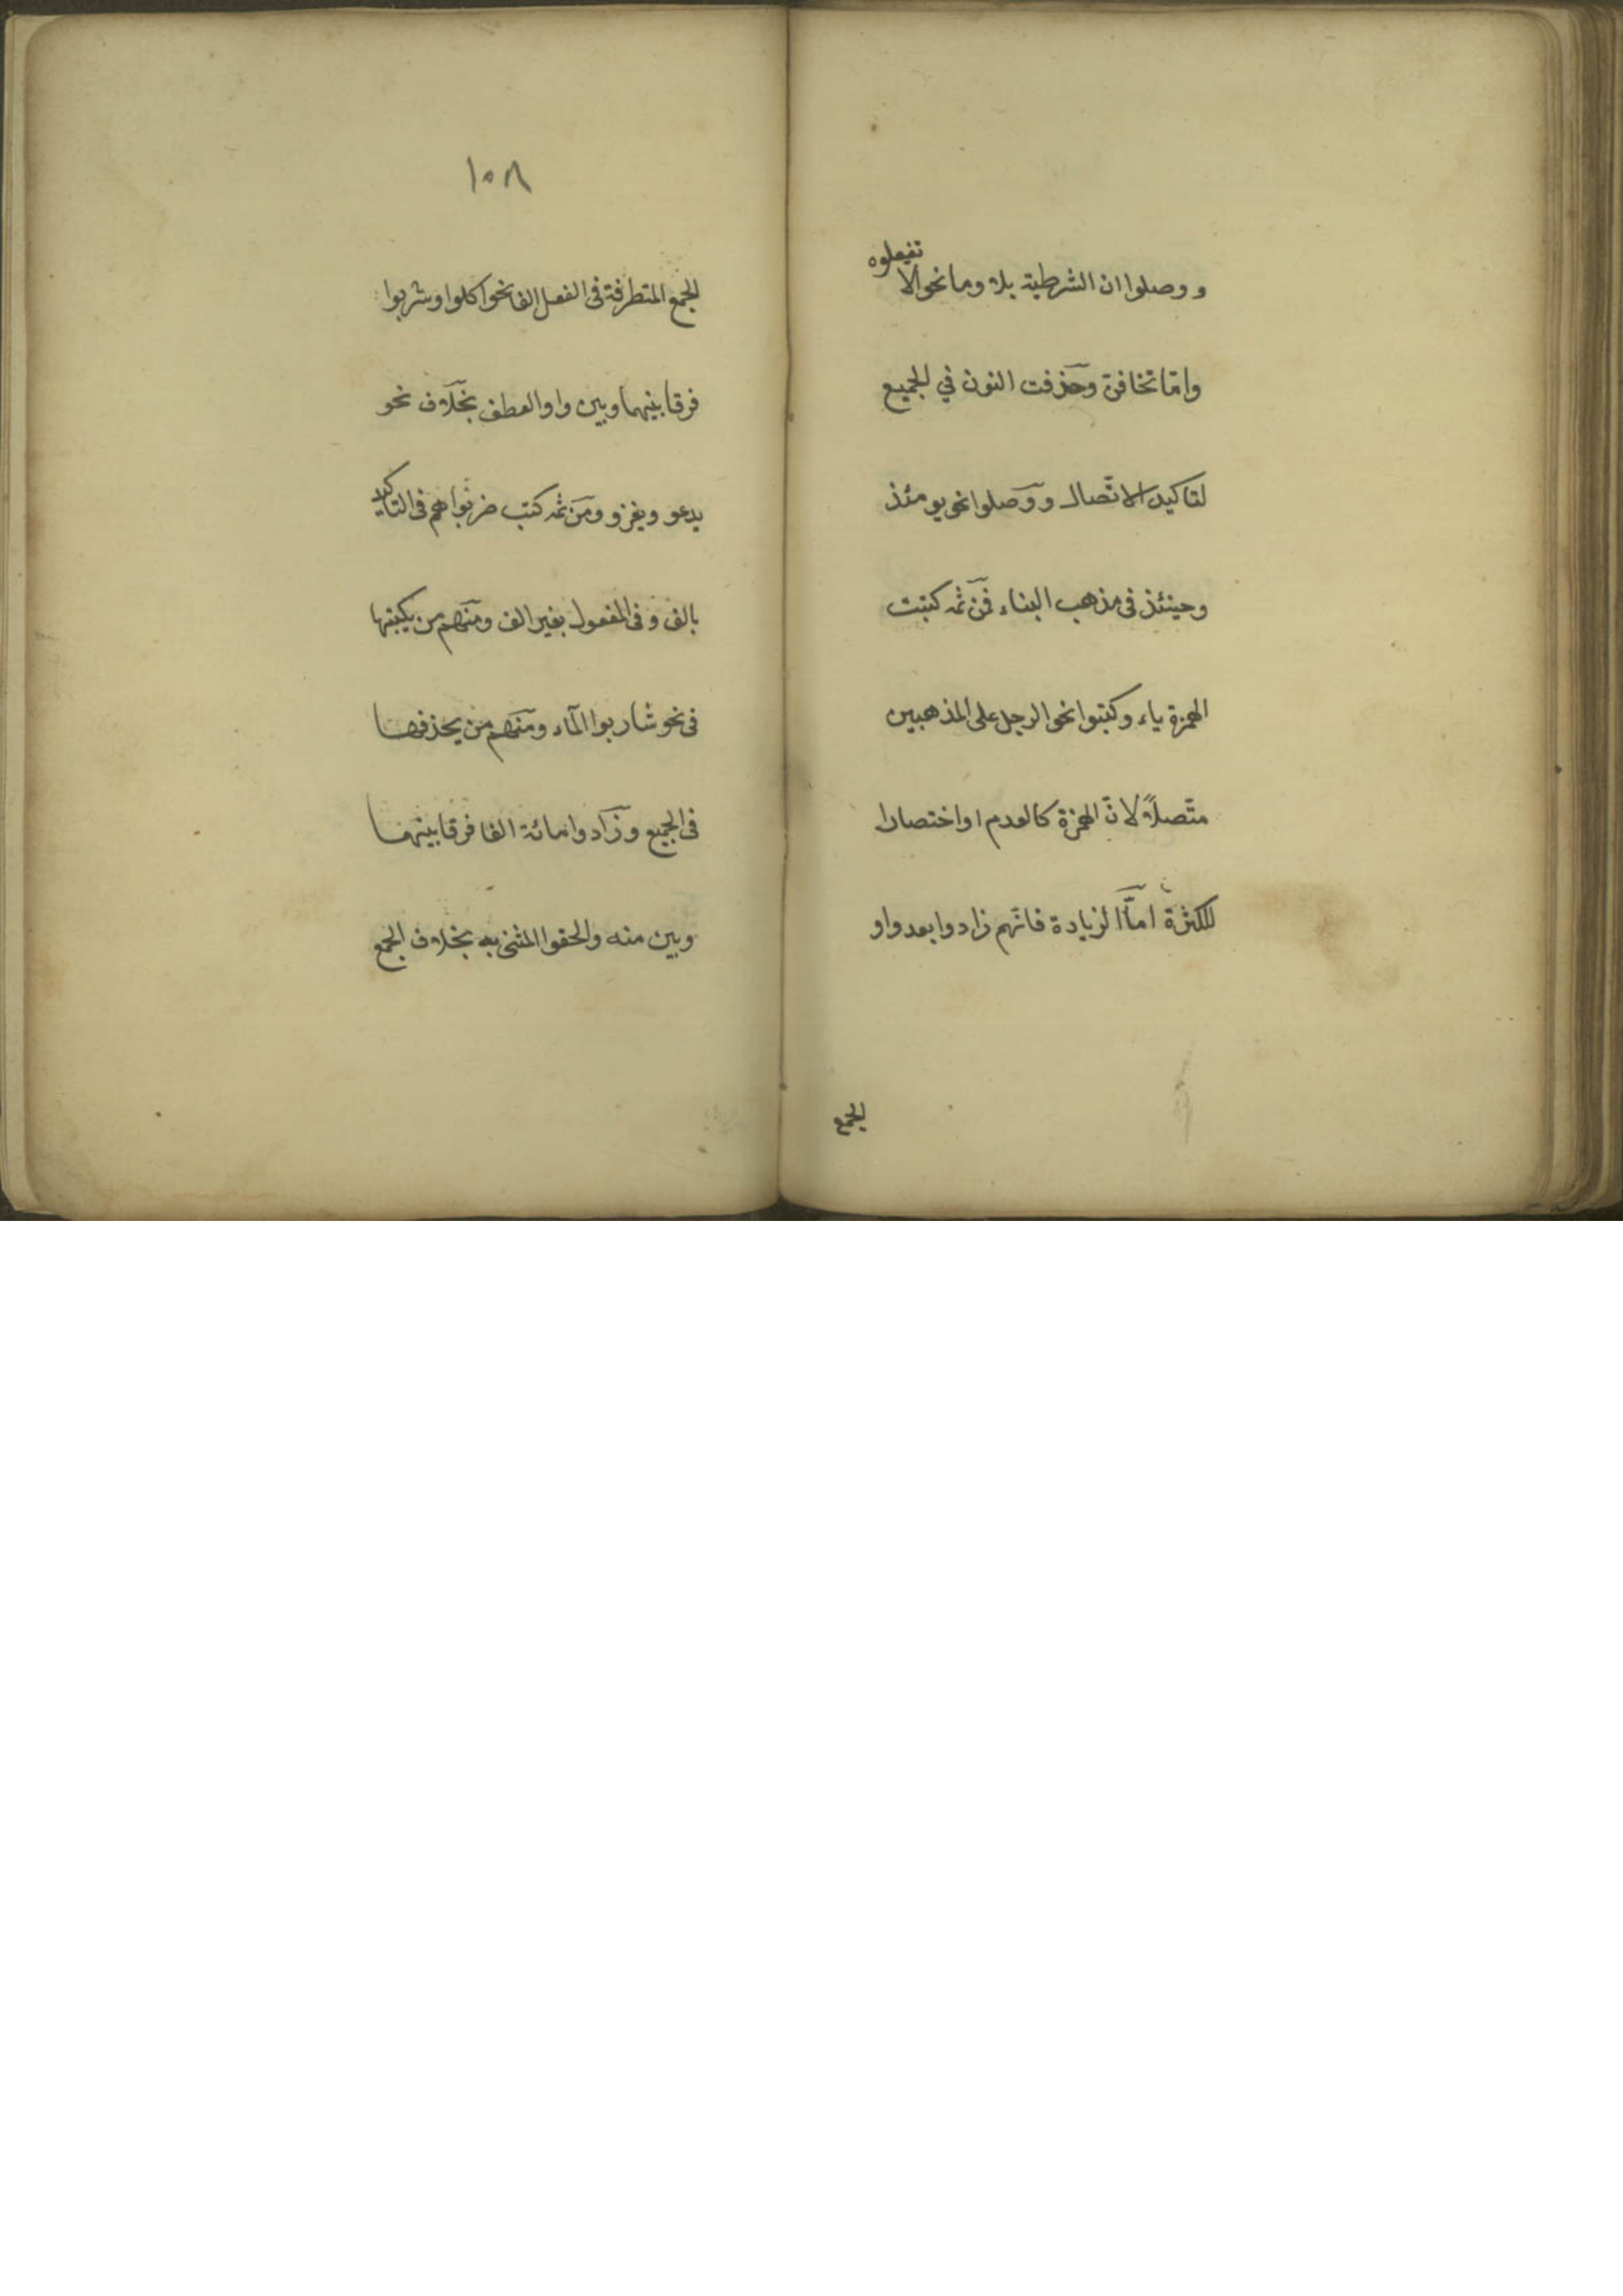 ووصلوا ان الشرطية بلا وما نحو الا تفعلوه
واما تخافن وحذفت النون في الجميع
لتاكيد الاتّصال ووصلوا نحو يومئذ
وحينئذ فى مذهب البناء فمن ثمه كتبت
الهمزة ياء وكتبوا نحو الرجل على المذهبين
متّصلاً لانّ الهمزة كالعدم او اختصارا
للكثرة امّا الزيادة فانّهم زادوا بعد واو
الجمع
١٥٨
الجمع المتطرفة فى الفعل الفا نحو اكلوا وشربوا
فرقا بينهما وبين واو العطف بخلاف نحو
يدعو ويغزو ومن ثمه كتب ضربوا هم فى التاكيد
بالف وفى المفعول بغير الف ومنهم من يكتبها
فى نحو شاربوا الماء ومنهم من يحذفها
فى الجميع وزادوا مائة الفا فرقا بينهما
وبين منه والحقوا المثنى به بخلاف الجمع